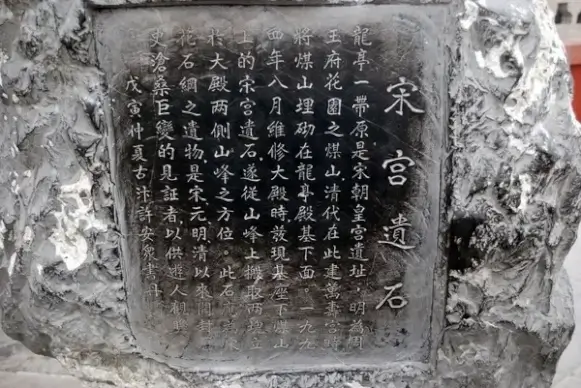 宋宮遺石
龍亭一帶原是宋朝皇宮遺址，明為周
王府花園之煤山，清代在此建萬壽宮時
將煤山埋砌在龍亭殿基下面。一九九
四年八月維修大殿時發現基座下煤山
上的宋宮遺石，遂從山峰上取两
於大殿两側山峰之方位。此石
花石綱之遺物，是宋元明清以來開封
史滄桑巨變的見証者以供遊人觀
戊寅仲夏古汴許安書丹